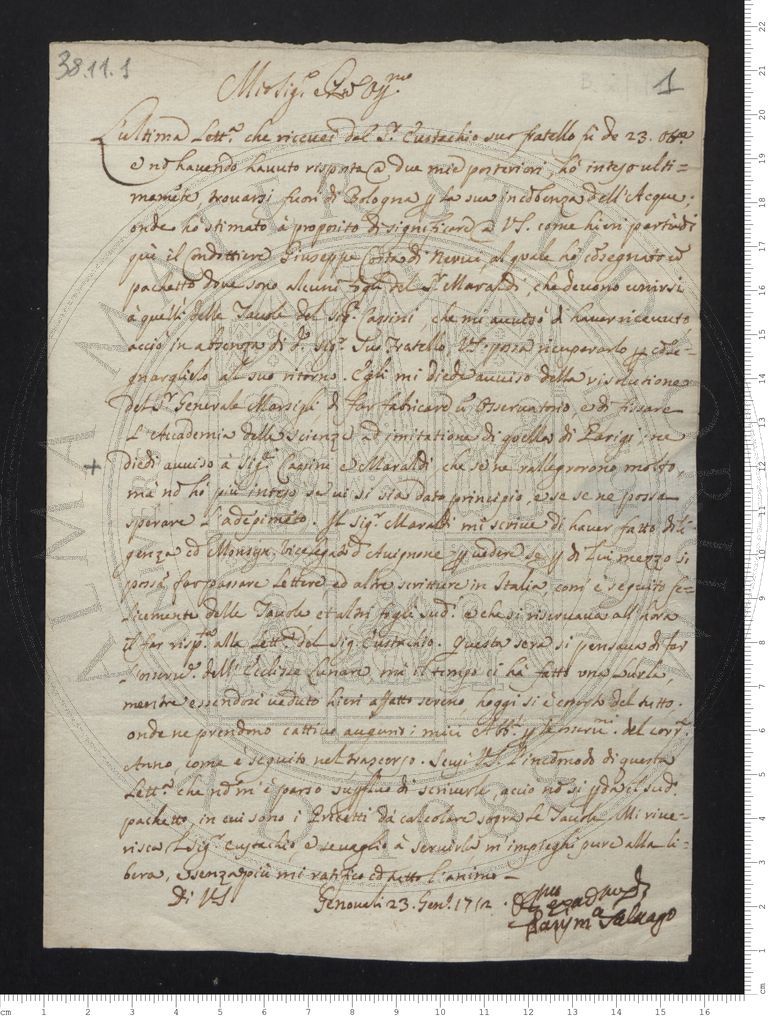 38.11.1
1
Mio Sig.r
L'ultima Lett.a che riceuei del S.r Eustachio suo fratello fù de 23.
e nõ hauendo hauuto risposta @ due mie posteriori, hò inteso ulti=
mamẽte, trouarsi fuori di Bologna p la sua incõbenza dell'Acque;
onde hò stimato à proposito di significare a VS. come hieri partì di
quì il Condottiere Giuseppe Costa di Nerui, al quale hò cõsegnato ũ
pachetto doue sono alcuni fogli del S.r Maraldi, che deuono unirsi
à quelli delle Tauole del Sig.r Cassini, che mi auuisò di hauer riceuuto
acciò in absenza di d.o Sig.r Suo Fratello, VS. possa ricuperarlo p cõse=
gnarglielo al suo ritorno. Egli mi diede auuiso della risolutione
del S.r Generale Marsigli di far fabricare ũ Osseruatorio, e di fissare
L'Academia delle scienze ad imitatione di quella di Parigi; ne
+ diedi auuiso à Sig.ri Cassini e Maraldi, che se ne rallegrorono molto,
mà nõ hò più inteso se ui si sia dato principio, e se se ne possa
sperare L'adẽpimẽto. Il Sig.r Maraldi mi scriue di hauer fatto dili=
genza cõ Monsig.r Vicelegato d'Auignone p uedere se p di lui mezzo si
possa far passare Lettere ed altre scritture in Italia, com'è seguito fe=
licemente delle Tauole et altri fogli sud.i e che si riseruaua all'hora
il far risp.ta alla Lett.a del Sig.r Eustachio. Questa sera si pensaua di far
l'osseru.e dell'Eclisse Lunare mà il tempo ci hà fatto una burla,
mentre essendosi ueduto hieri affatto sereno, hoggi si è coperto del tutto.
onde ne prendono cattiuo augurio i miei p le osseru.ni del corr.e
Anno, come è seguito nel trascorso. Scusi VS. l'incõmodo di questa
Lett.a che nõ m'è parso superfluo di scriuerle, acciò nõ si pda il sud.o
pachetto, in cui sono i Precetti da calcolare sopra le Tauole. Mi riue=
risca il Sig.r Eustachio, e se uaglio à seruirla m'impieghi pure alla li=
bera, e senza più mi ratifico cõ tutto l'animo
Di VS
Genoua li 23. Gen.o 1712.
Paris M.a Saluago